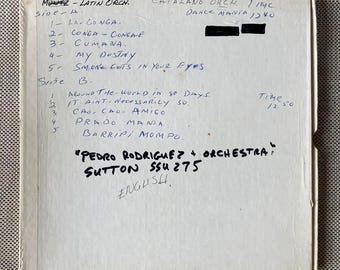 LATIN ORCH.
CATALANO ORCH. / INC
DANCE MANIA 1240
SIDE - A
1 - LA CONGA.
2 - CONGA - CONGAE
3 - CUMANA.
4 - MY DESTINY
5 - SMOKE GETS IN YOUR EYES
SIDE B.
1 AROUND THE WORLD IN 80 DAYS.
2 IT AINT - NECESSARILY SO.
3 CAO - CAO - AMIGO
4 PRADO MANIA
5 BARRIPI MOMPO.
TIME
12:50
"PEDRO RODRIGUEZ + ORCHESTRA"
SUTTON SSU 275
ENGLISH